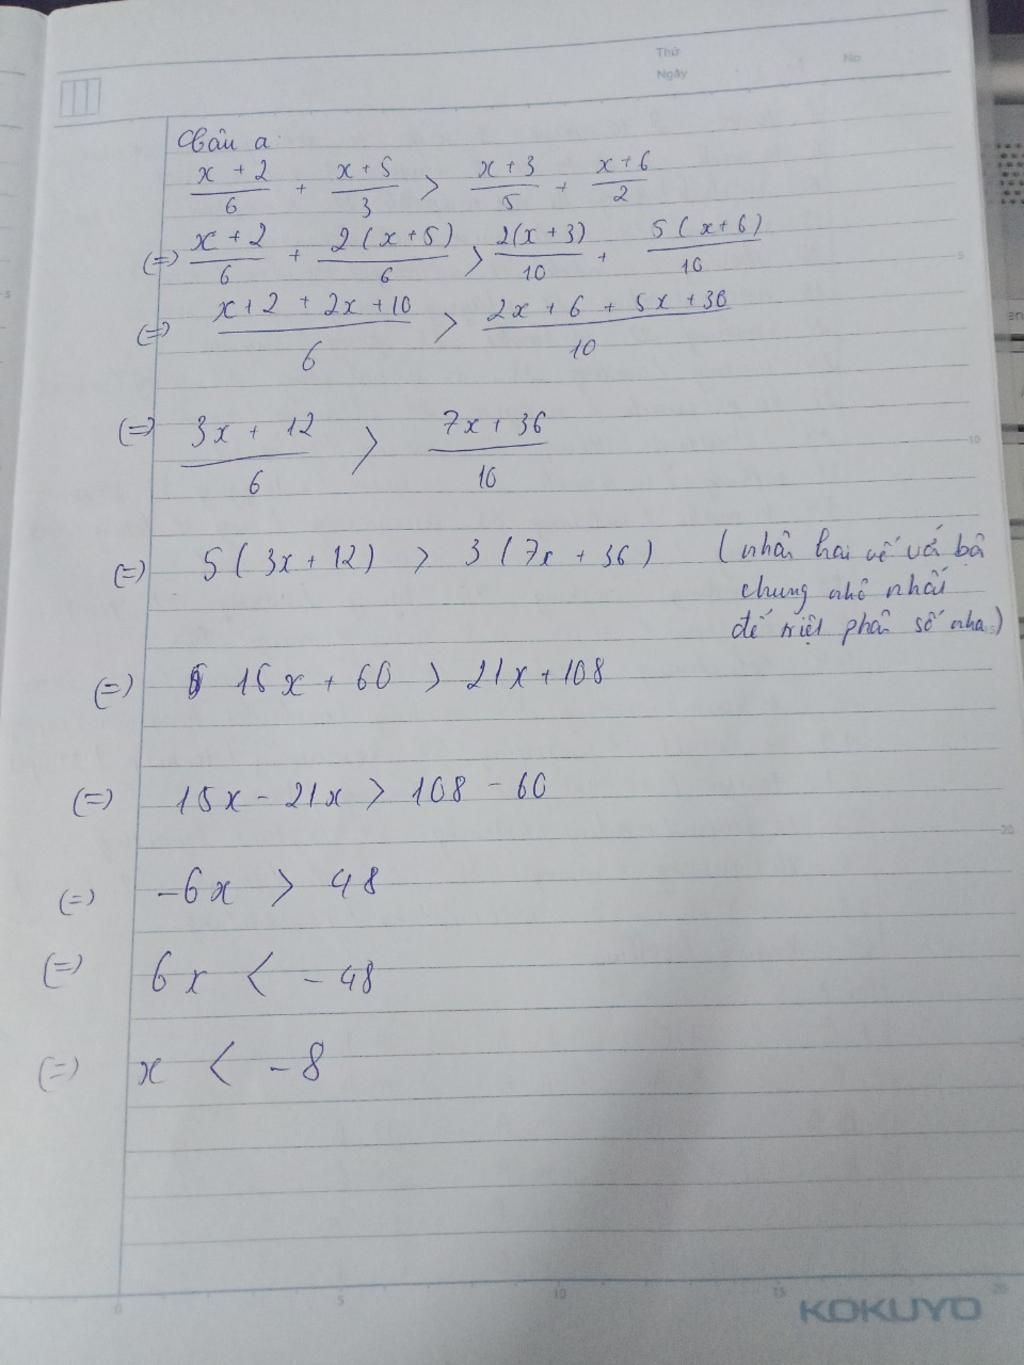 Thứ
Ngày
No
Câu a:
x + 2 / 6 + x + 5 / 3 > x + 3 / 5 + x + 6 / 2
(=) x + 2 / 6 + 2(x+5) / 6 > 2(x+3) / 10 + 5(x+6) / 10
(=) x+2 + 2x+10 / 6 > 2x + 6 + 5x + 30 / 10
(=) 3x + 12 / 6 > 7x + 36 / 10
(=) 5(3x + 12) > 3(7x + 36) (nhân hai vế với bô
chung nhỏ nhất
để triệt phân số nha)
(=) 15x + 60 > 21x + 108
(=) 15x - 21x > 108 - 60
(=) -6x > 48
(=) 6x < -48
(=) x < -8
5
10
20
0
5
10
15
20
KOKUYO